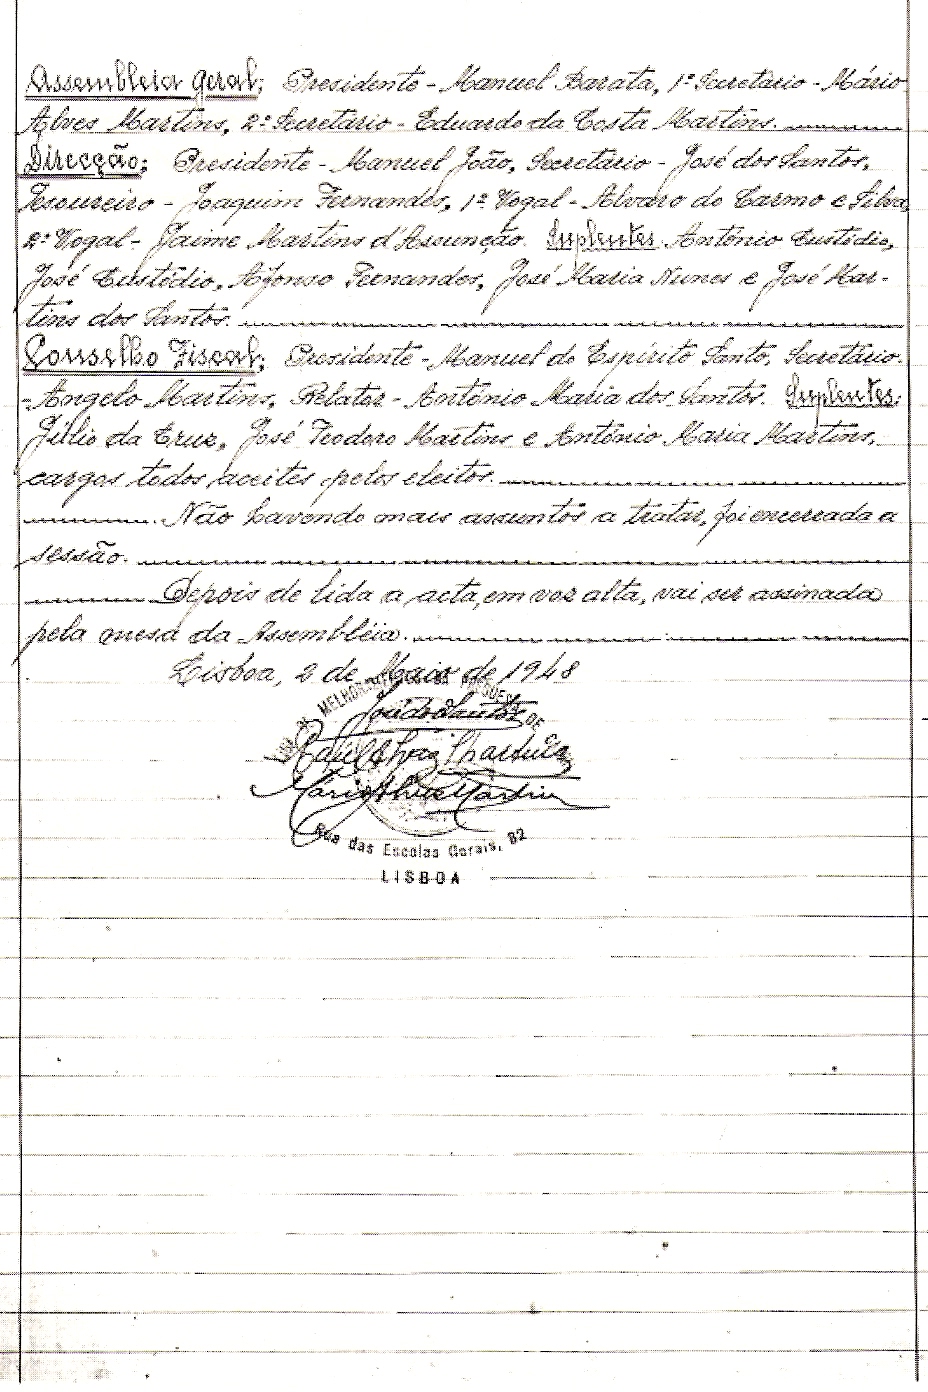 Assembleia Geral; Presidente - Manuel Barata, 1º Secretário - Mário
Alves Martins, 2º Secretário - Eduardo da Costa Martins.
Direcção; Presidente - Manuel João, Secretário - José dos Santos,
Tesoureiro - Joaquim Fernandes, 1º Vogal - Alvaro do Carmo e Silva
2º Vogal - Jaime Martins d'Assunção. Suplentes António Custódio,
José Custódio, Afonso Fernandes, José Maria Nunes e José Mar-
tins dos Santos.
Conselho Fiscal; Presidente - Manuel do Espírito Santo, Secretário -
- Angelo Martins, Relator - António Maria dos Santos. Suplentes;
Júlio da Cruz, José Teodoro Martins e António Maria Martins,
cargos todos aceites pelos eleitos.
Não havendo mais assuntos a tratar, foi encerrada a
sessão.
Depois de lida a acta, em voz alta, vai ser assinada
pela mesa da Assembléia.
Lisboa, 2 de Maio de 1948
José dos Santos
Mário Alves Martins
Rua das Escolas Gerais, 82
LISBOA